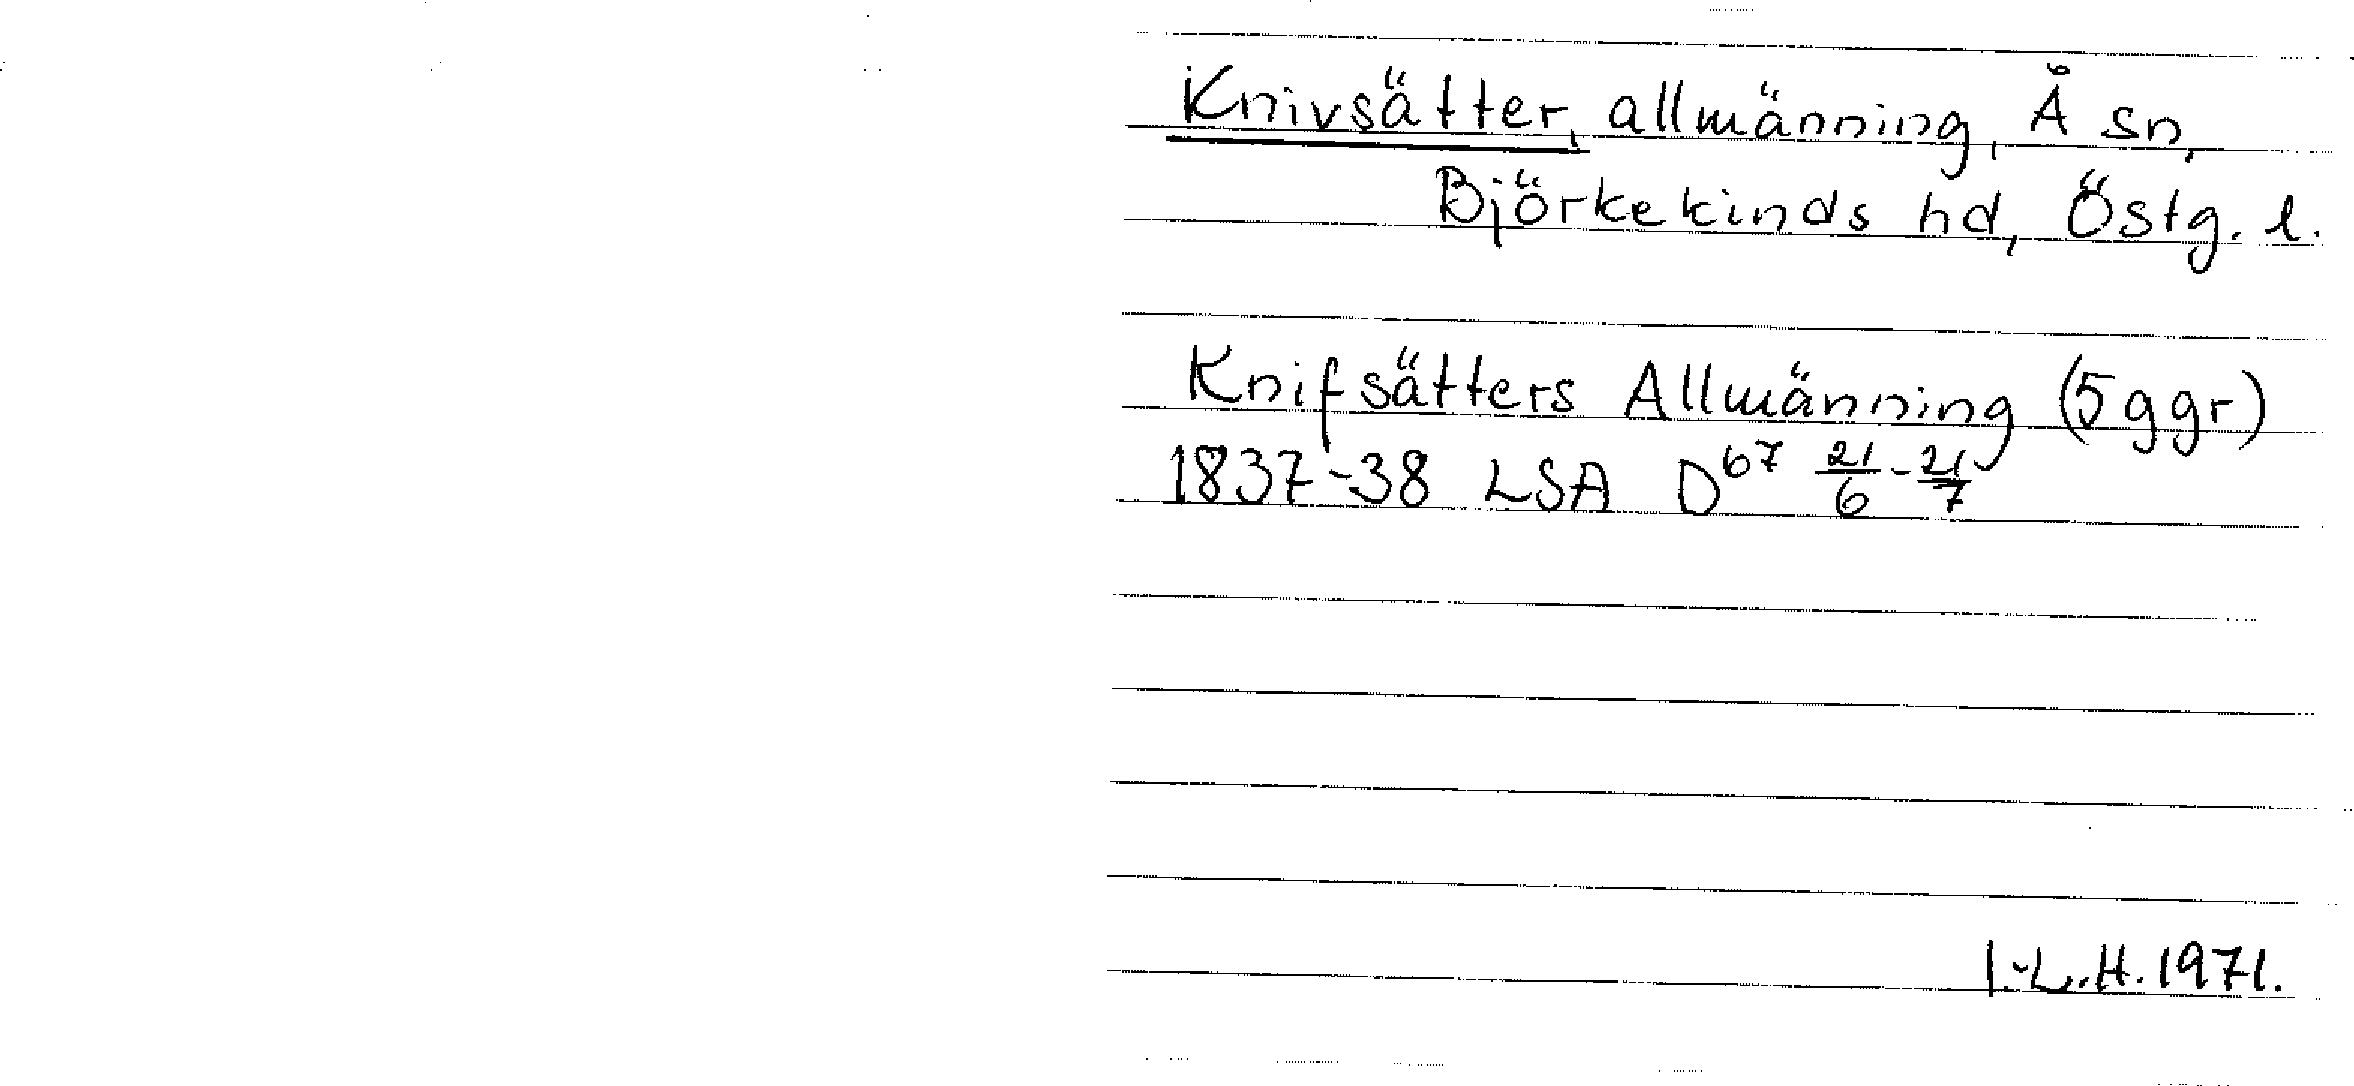 Knivsätter, allmänning, Å sn,
Björkekinds hd, Östg. l.
Knifsätters Allmänning (5 ggr)
1837-38 LSA D⁶⁷ 21/6 - 21/7
I.-L.H. 1971.